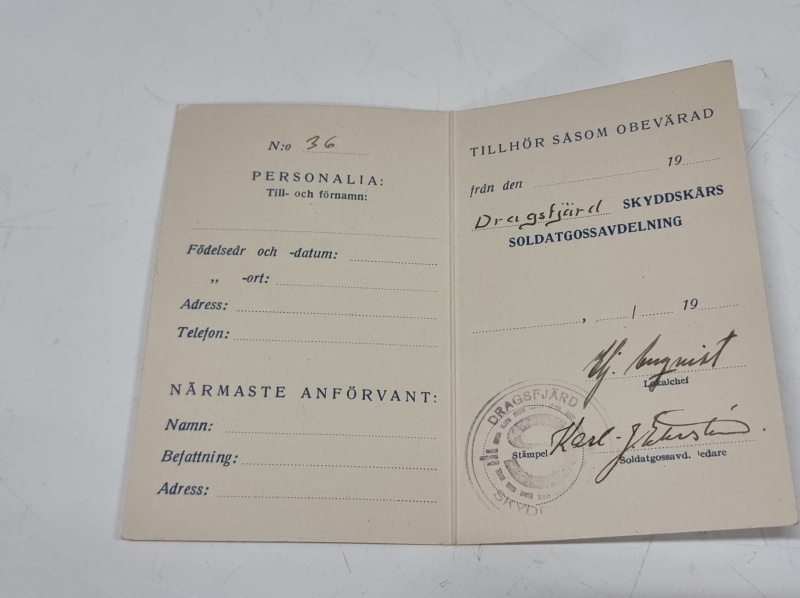 N:o 36
PERSONALIA:
Till- och förnamn:
Födelseår och -datum:
„ -ort:
Adress:
Telefon:
NÄRMASTE ANFÖRVANT:
Namn:
Befattning:
Adress:
TILLHÖR SÅSOM OBEVÄRAD
från den 19
Dragsfjärd SKYDDSKÅRS
SOLDATGOSSAVDELNING
, / 19
Lokalchef
DRAGSFJÄRD
Stämpel Karl-
Soldatgossavd. ledare
SKYD